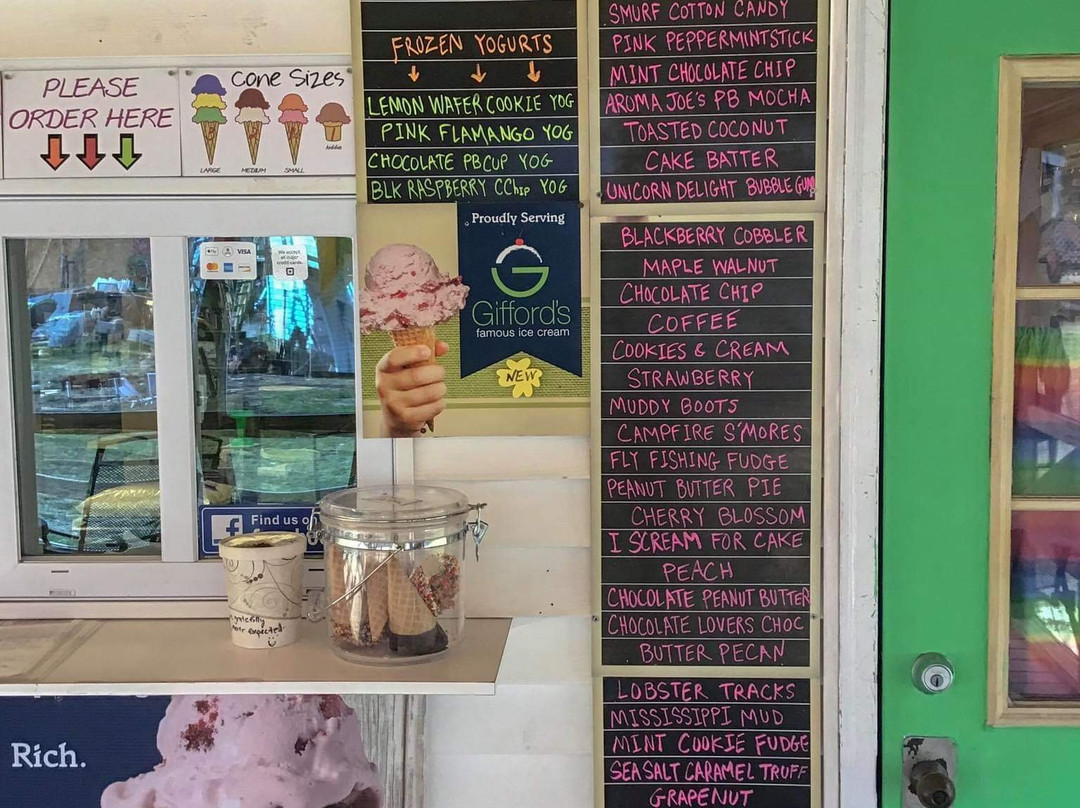 PLEASE
ORDER HERE
Cone Sizes
LARGE MEDIUM SMALL kiddie
FROZEN YOGURTS
LEMON WAFER COOKIE YOG
PINK FLAMANGO YOG
CHOCOLATE PBCUP YOG
BLK RASPBERRY CChip YOG
Proudly Serving
Gifford's
famous ice cream
NEW
VISA
We accept
all major
credit cards.
Find us on
Rich.
SMURF COTTON CANDY
PINK PEPPERMINTSTICK
MINT CHOCOLATE CHIP
AROMA JOE'S PB MOCHA
TOASTED COCONUT
CAKE BATTER
UNICORN DELIGHT BUBBLE GUM
BLACKBERRY COBBLER
MAPLE WALNUT
CHOCOLATE CHIP
COFFEE
COOKIES & CREAM
STRAWBERRY
MUDDY BOOTS
CAMPFIRE S'MORES
FLY FISHING FUDGE
PEANUT BUTTER PIE
CHERRY BLOSSOM
I SCREAM FOR CAKE
PEACH
CHOCOLATE PEANUT BUTTER
CHOCOLATE LOVERS CHOC
BUTTER PECAN
LOBSTER TRACKS
MISSISSIPPI MUD
MINT COOKIE FUDGE
SEA SALT CARAMEL TRUFF
GRAPENUT